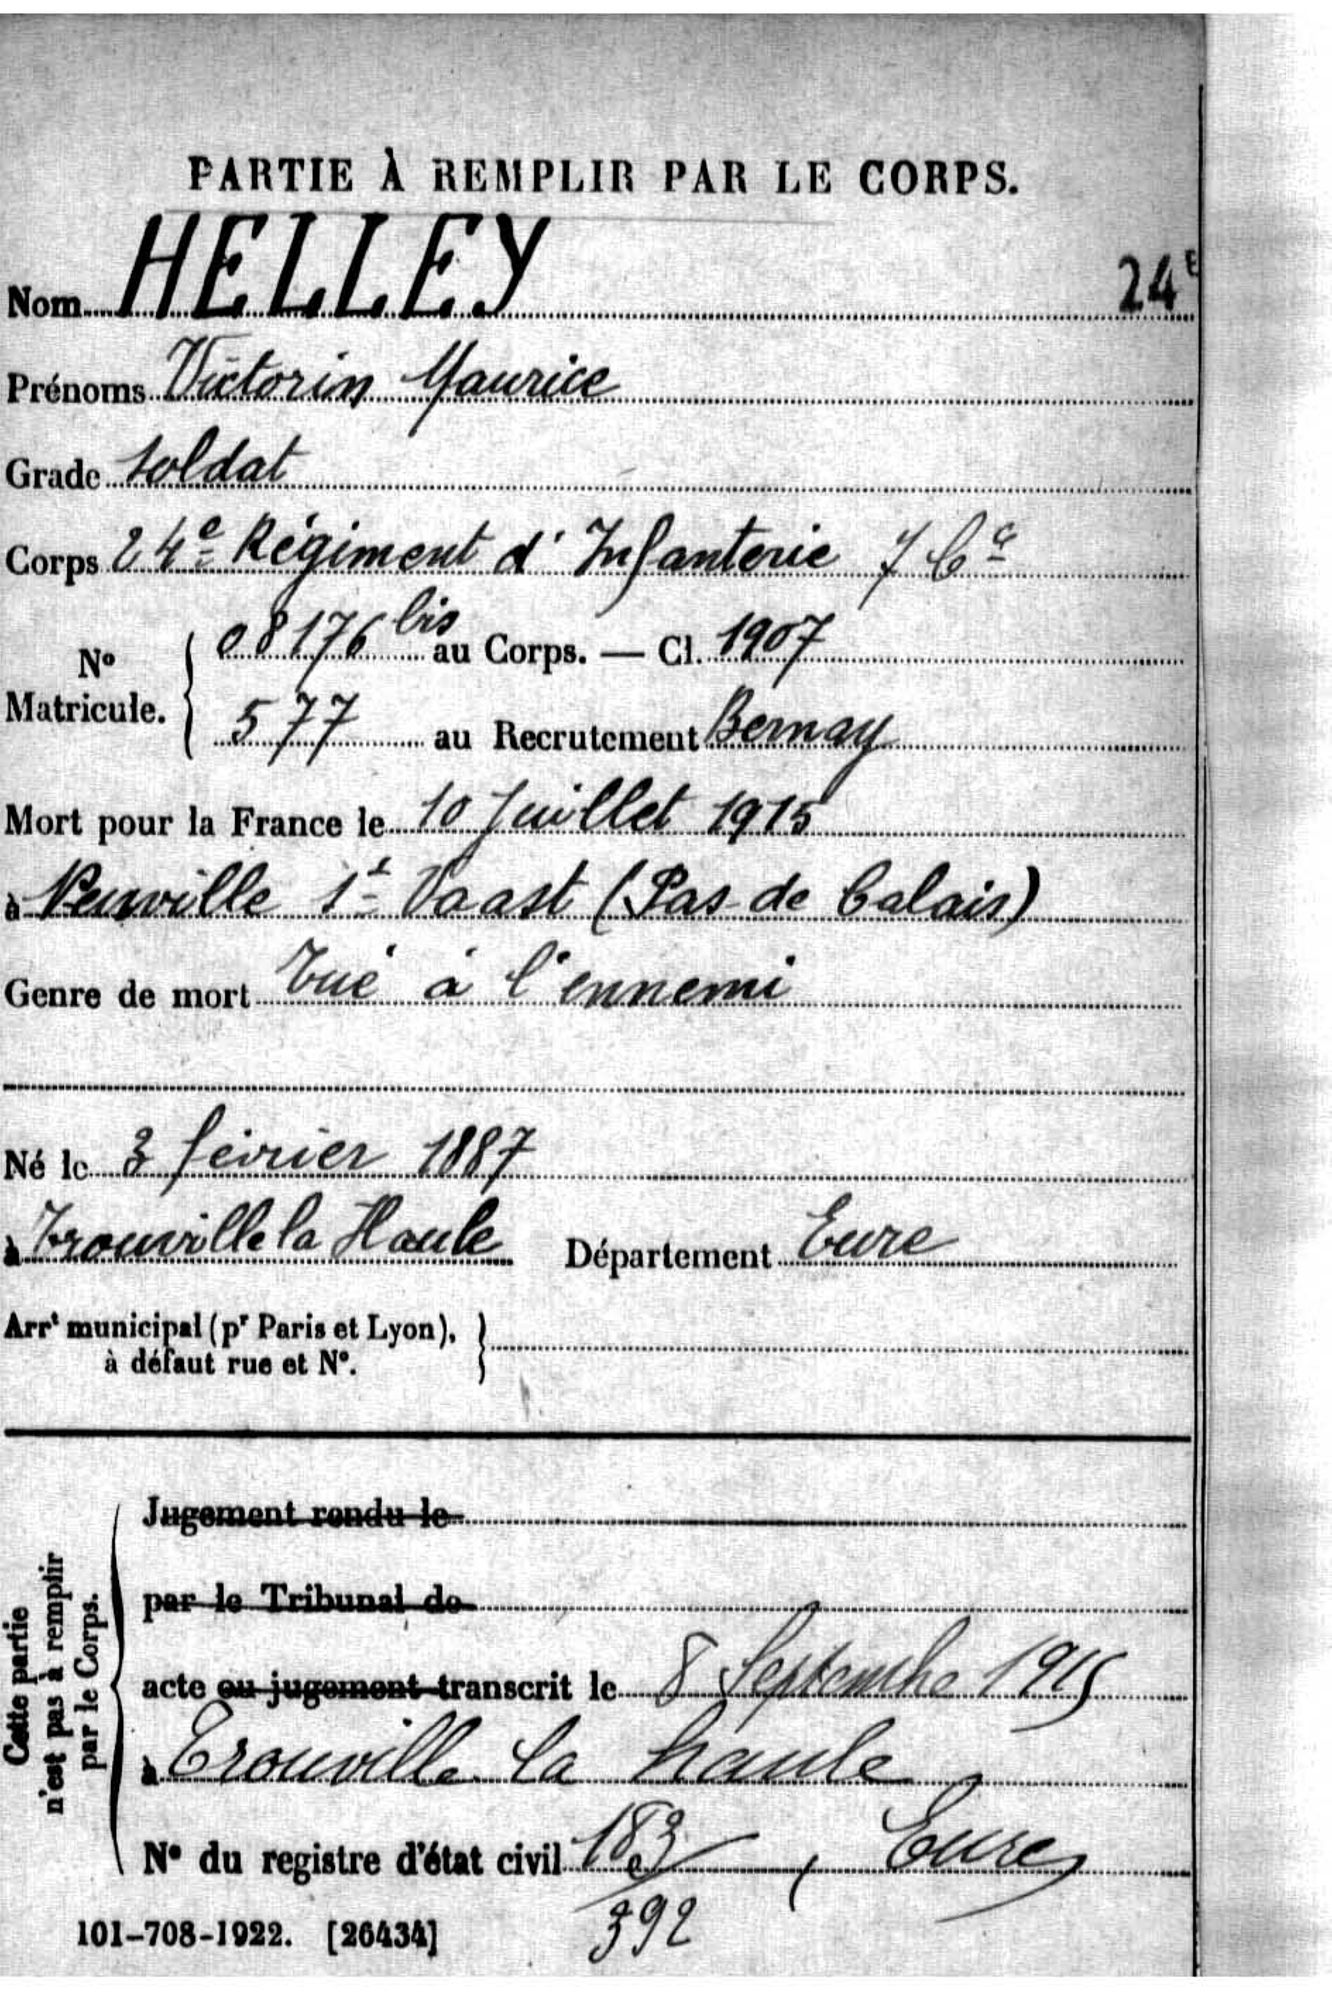 PARTIE À REMPLIR PAR LE CORPS.
Nom HELLEY 24E
Prénoms Victorin Maurice
Grade soldat
Corps 24e Régiment d'Infanterie 7 Cie
No Matricule. 08176 bis au Corps. — Cl. 1907
577 au Recrutement Bernay
Mort pour la France le 10 Juillet 1915
à Neuville St Vaast (Pas de Calais)
Genre de mort tué à l'ennemi
Né le 3 février 1887
à Trouville la Haule Département Eure
Arrt municipal (pr Paris et Lyon),
à défaut rue et No.
Cette partie
n'est pas à remplir
par le Corps.
Jugement rendu le
par le Tribunal de
acte ou jugement transcrit le 8 Septembre 1915
à Trouville la haule
No du registre d'état civil 183 , Eure
392
101-708-1922. [26434]